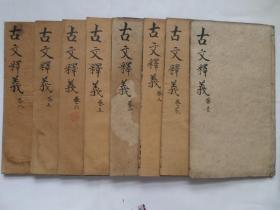 古文釋義
卷八
古文釋義
卷七
古文釋義
卷六
古文釋義
卷五
古文釋義
古文釋義
古文釋義
古文釋義
卷壹